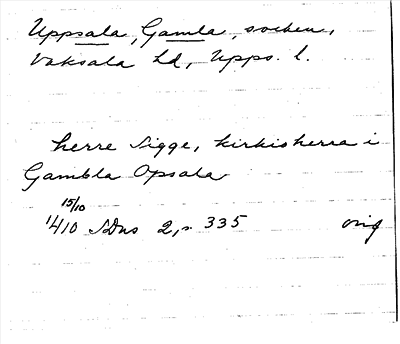 Uppsala, Gamla, socken,
Vaksala hd, Upps. l.
herre Sigge, kirkioherra i
Gambla Opsala
15/10
1410 SDns 2, s. 335 orig